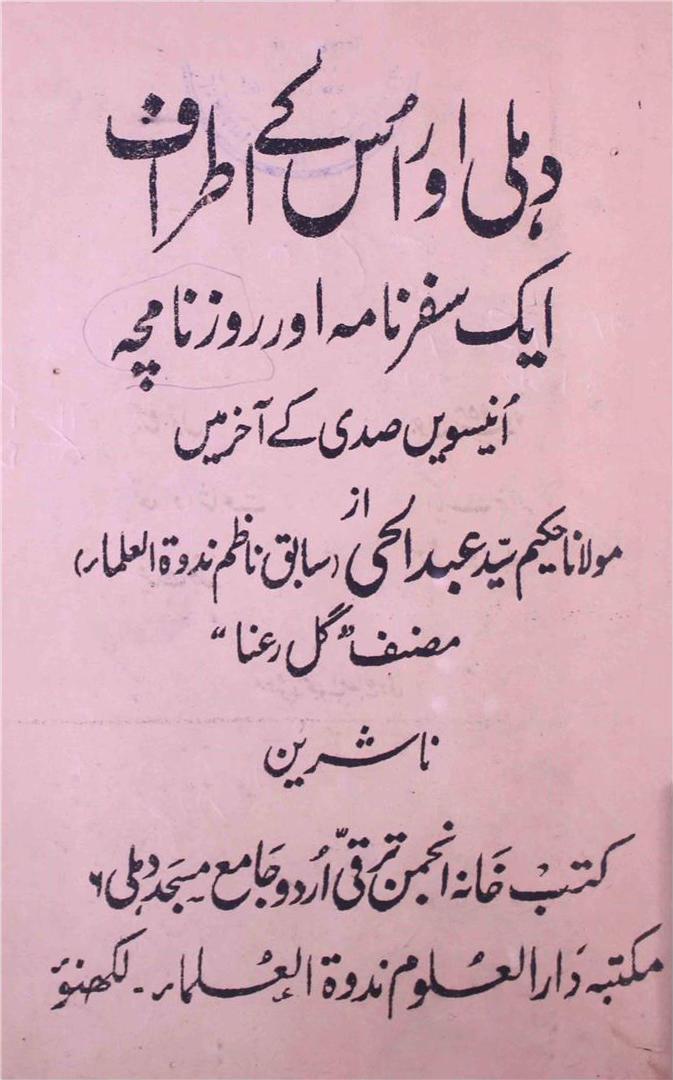 دہلی اور اُس کے اطراف
ایک سفرنامہ اور روزنامچہ
اُنیسویں صدی کے آخر میں
از
مولانا حکیم سیّد عبدالحی (سابق ناظم ندوۃ العلماء)
مصنف "گل رعنا"
ناشرین
کتب خانہ انجمن ترقیّ اُردو جامع مسجد دہلی ۶
مکتبہ دَار العُلوم ندوۃ العُلماء۔ لکھنؤ